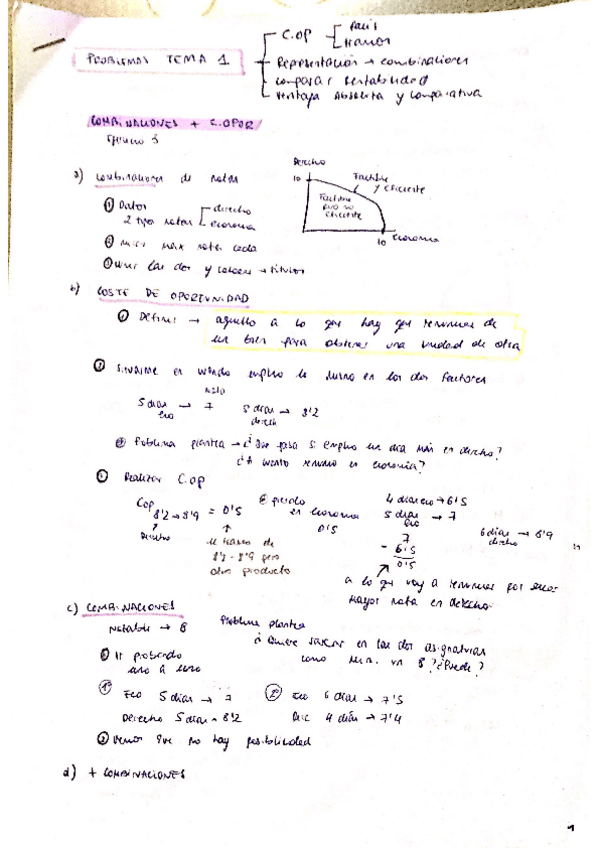 PROBLEMAS TEMA 1
C.OP
País
Representación → combinaciones
comparar rentabilidad
Ventaja Absoluta y comparativa
COMBINACIONES + C.OPOR
Ejercicio 3
a) combinaciones de notas
① Datos
2 tipos notas
derecho
economía
② mirar max nota cada
③ unir las dos y colocar → títulos
Derecho
10
Factible
y eficiente
Factible
pero no
eficiente
10
Economía
b) COSTE DE OPORTUNIDAD
① Definir → aquello a lo que hay que renunciar de
un bien para obtener una unidad de otra
② Situarme en cuando empleo lo mismo en los dos factores
nota
5 días → 7
eco
5 días → 8'2
derech
③ Problema plantea → ¿Que pasa si empleo un día más en derecho?
¿A cuánto renuncio en economía?
Realizar C.OP
Cop 8'2 → 8'9 = 0'5
Derecho
8'2 - 8'9 pero
otro producto
pierdo
en economia
0'5
4 días eco → 6'5
5 días → 7
eco
7
- 6'5
0'5
6 días → 8'9
derecho
a lo que voy a renunciar por sacar
mayor nota en derecho
c) COMBINACIONES
Notable → 8
Problema plantea
¿Quiere sacar en las dos asignaturas
como min. un 8? ¿Puede?
① Ir probando
uno a uno
1º Eco 5 días → 7
Derecho 5 días → 8'2
2º Eco 6 días → 7'5
Dic 4 días → 7'4
② Vemos que no hay posibilidad
d) + COMBINACIONES
1